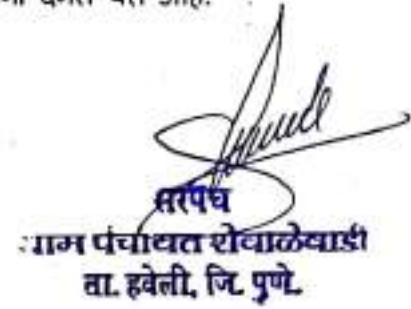 आहे.
सरपंच
ग्राम पंचायत शेवाळेवाडी
ता. हवेली, जि. पुणे.